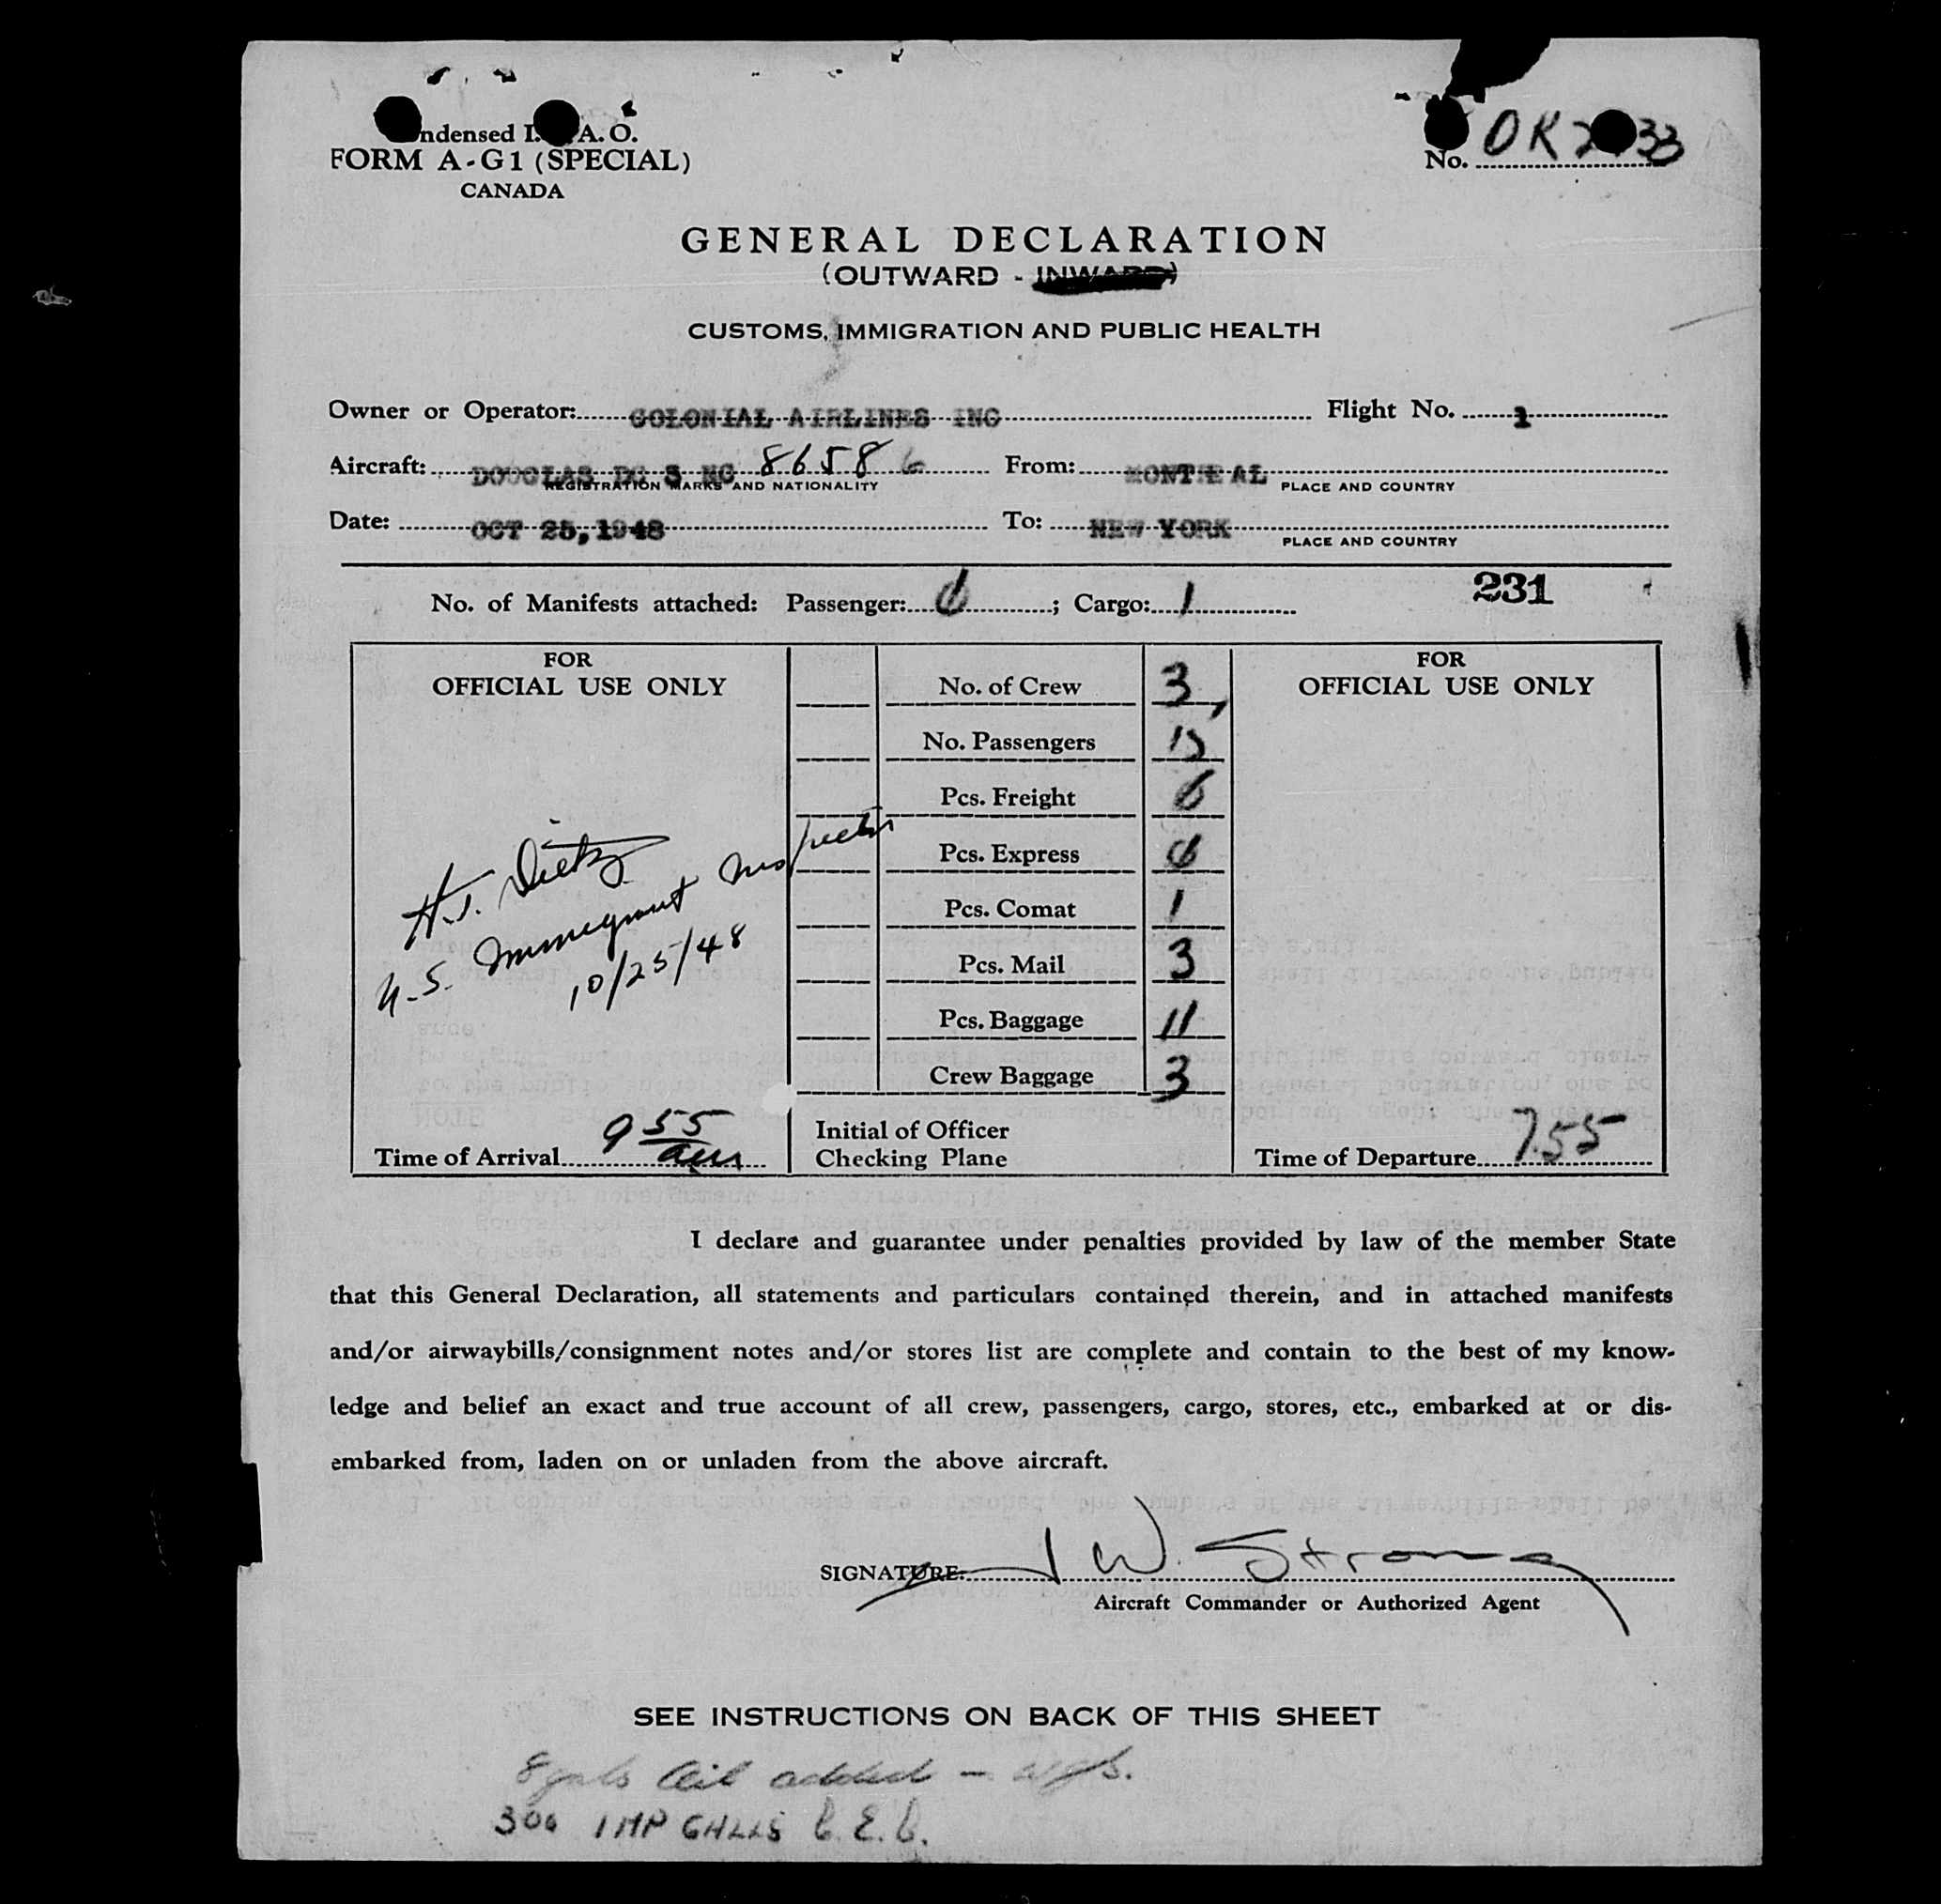 ndensed I. A. O.
FORM A-G1 (SPECIAL)
CANADA
No. OK2 33
GENERAL DECLARATION
(OUTWARD - INWARD)
CUSTOMS, IMMIGRATION AND PUBLIC HEALTH
Owner or Operator: COLONIAL AIRLINES INC Flight No. 1
Aircraft: DOUGLAS DC 3 NC 86586 From: MONTREAL
REGISTRATION MARKS AND NATIONALITY PLACE AND COUNTRY
Date: OCT 25, 1948 To: NEW YORK
PLACE AND COUNTRY
231
No. of Manifests attached: Passenger: ; Cargo: 1
FOR
OFFICIAL USE ONLY
H.J. Dietz
U.S. Immigrant Inspector
10/25/48
Time of Arrival 9 55 am
No. of Crew 3
No. Passengers
Pcs. Freight
Pcs. Express
Pcs. Comat 1
Pcs. Mail 3
Pcs. Baggage 11
Crew Baggage 3
Initial of Officer
Checking Plane
FOR
OFFICIAL USE ONLY
Time of Departure 7.55
I declare and guarantee under penalties provided by law of the member State
that this General Declaration, all statements and particulars contained therein, and in attached manifests
and/or airwaybills/consignment notes and/or stores list are complete and contain to the best of my know-
ledge and belief an exact and true account of all crew, passengers, cargo, stores, etc., embarked at or dis-
embarked from, laden on or unladen from the above aircraft.
SIGNATURE: J W. Strong
Aircraft Commander or Authorized Agent
SEE INSTRUCTIONS ON BACK OF THIS SHEET
8 gals Oil added -
300 IMP GALLS